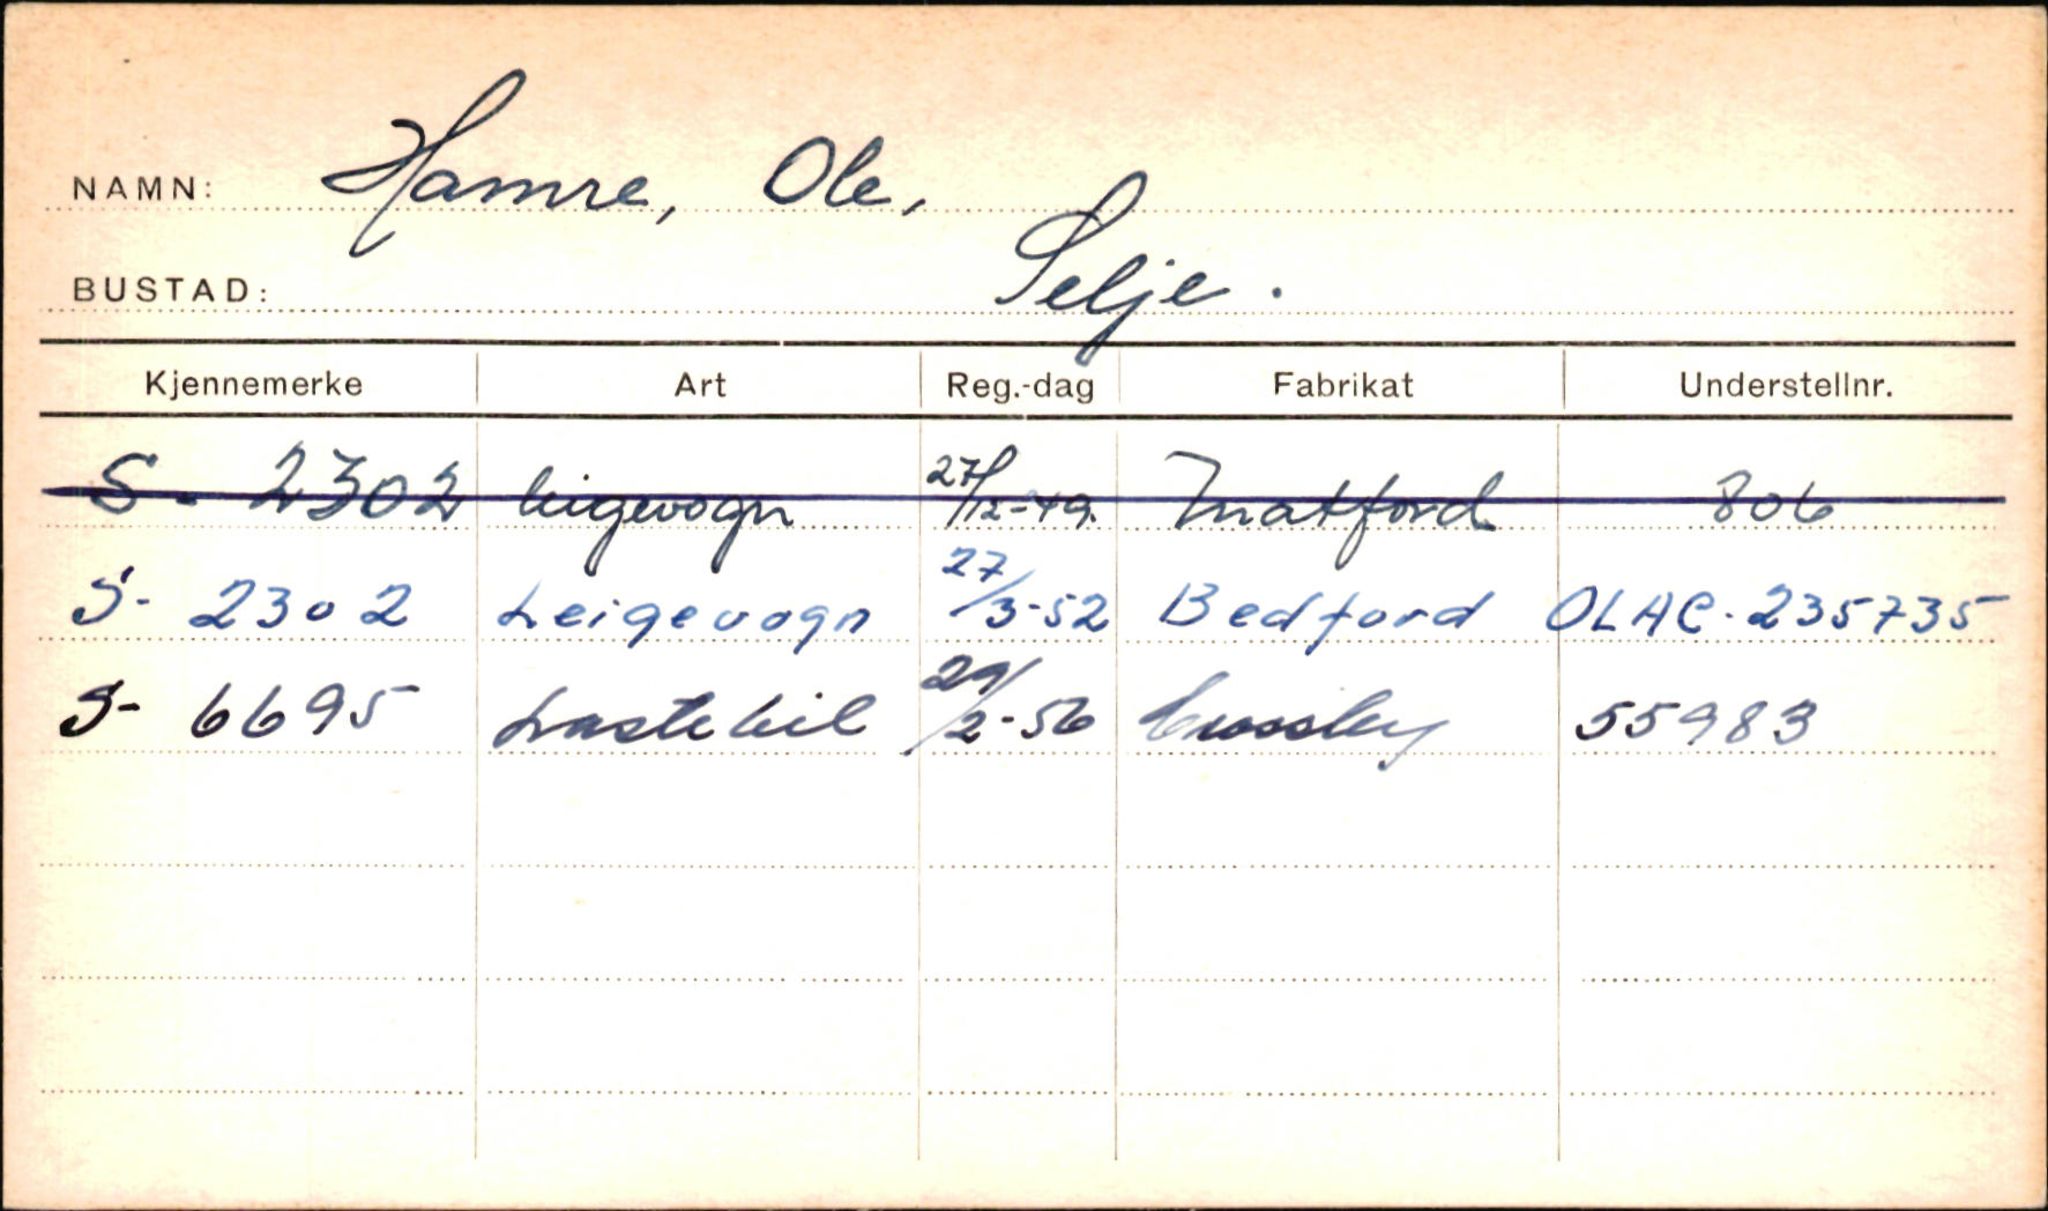 NAMN: Hamre, Ole,
BUSTAD: Selje.
Kjennemerke Art Reg.-dag Fabrikat Understellnr.
S - 2302 leigevogn 27/12-49. Matford 806
S- 2302 Leigevogn 27/3-52 Bedford OLAC-235735
S- 6695 Lastebil 29/2-56 Crossley 55983